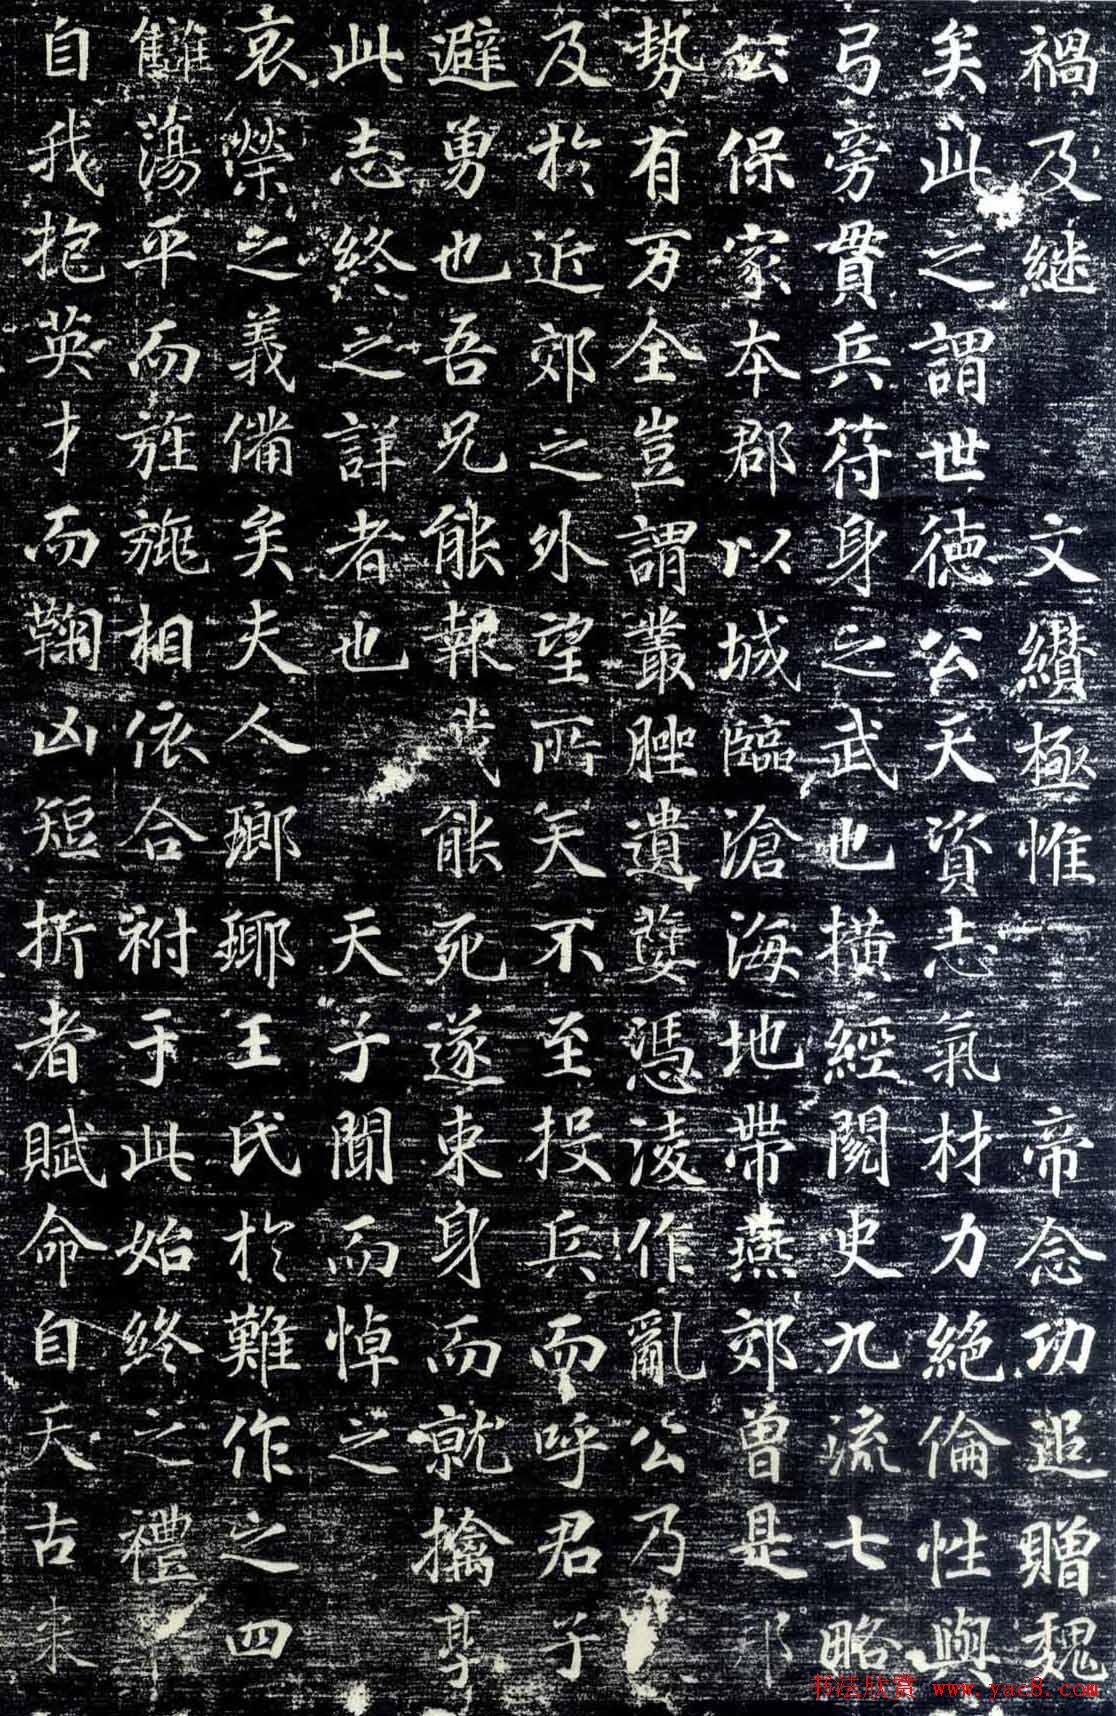 禍及継　　文纘極惟　　帝念功追贈魏
矣此之謂世德公天資志氣材力絶倫性與
弓旁貫兵符身之武也撗經閱史九流七略
公保家本郡以城臨滄海地帶燕郊曽是
勢有万全豈謂叢脞遺孽憑淩作亂公乃
及於近郊之外望所矢不至投兵而呼君子
避勇也吾兄能報我能死遂束身而就擒享
此志終之詳者也　　天子聞而悼之
哀榮之義備矣夫人瑯瑘王氏於難作之四
讎蕩平而旌旐相依合祔于此始終之禮
自我抱英才而鞠凶短折者賦命自天古未
书法欣赏 www.yac8.com